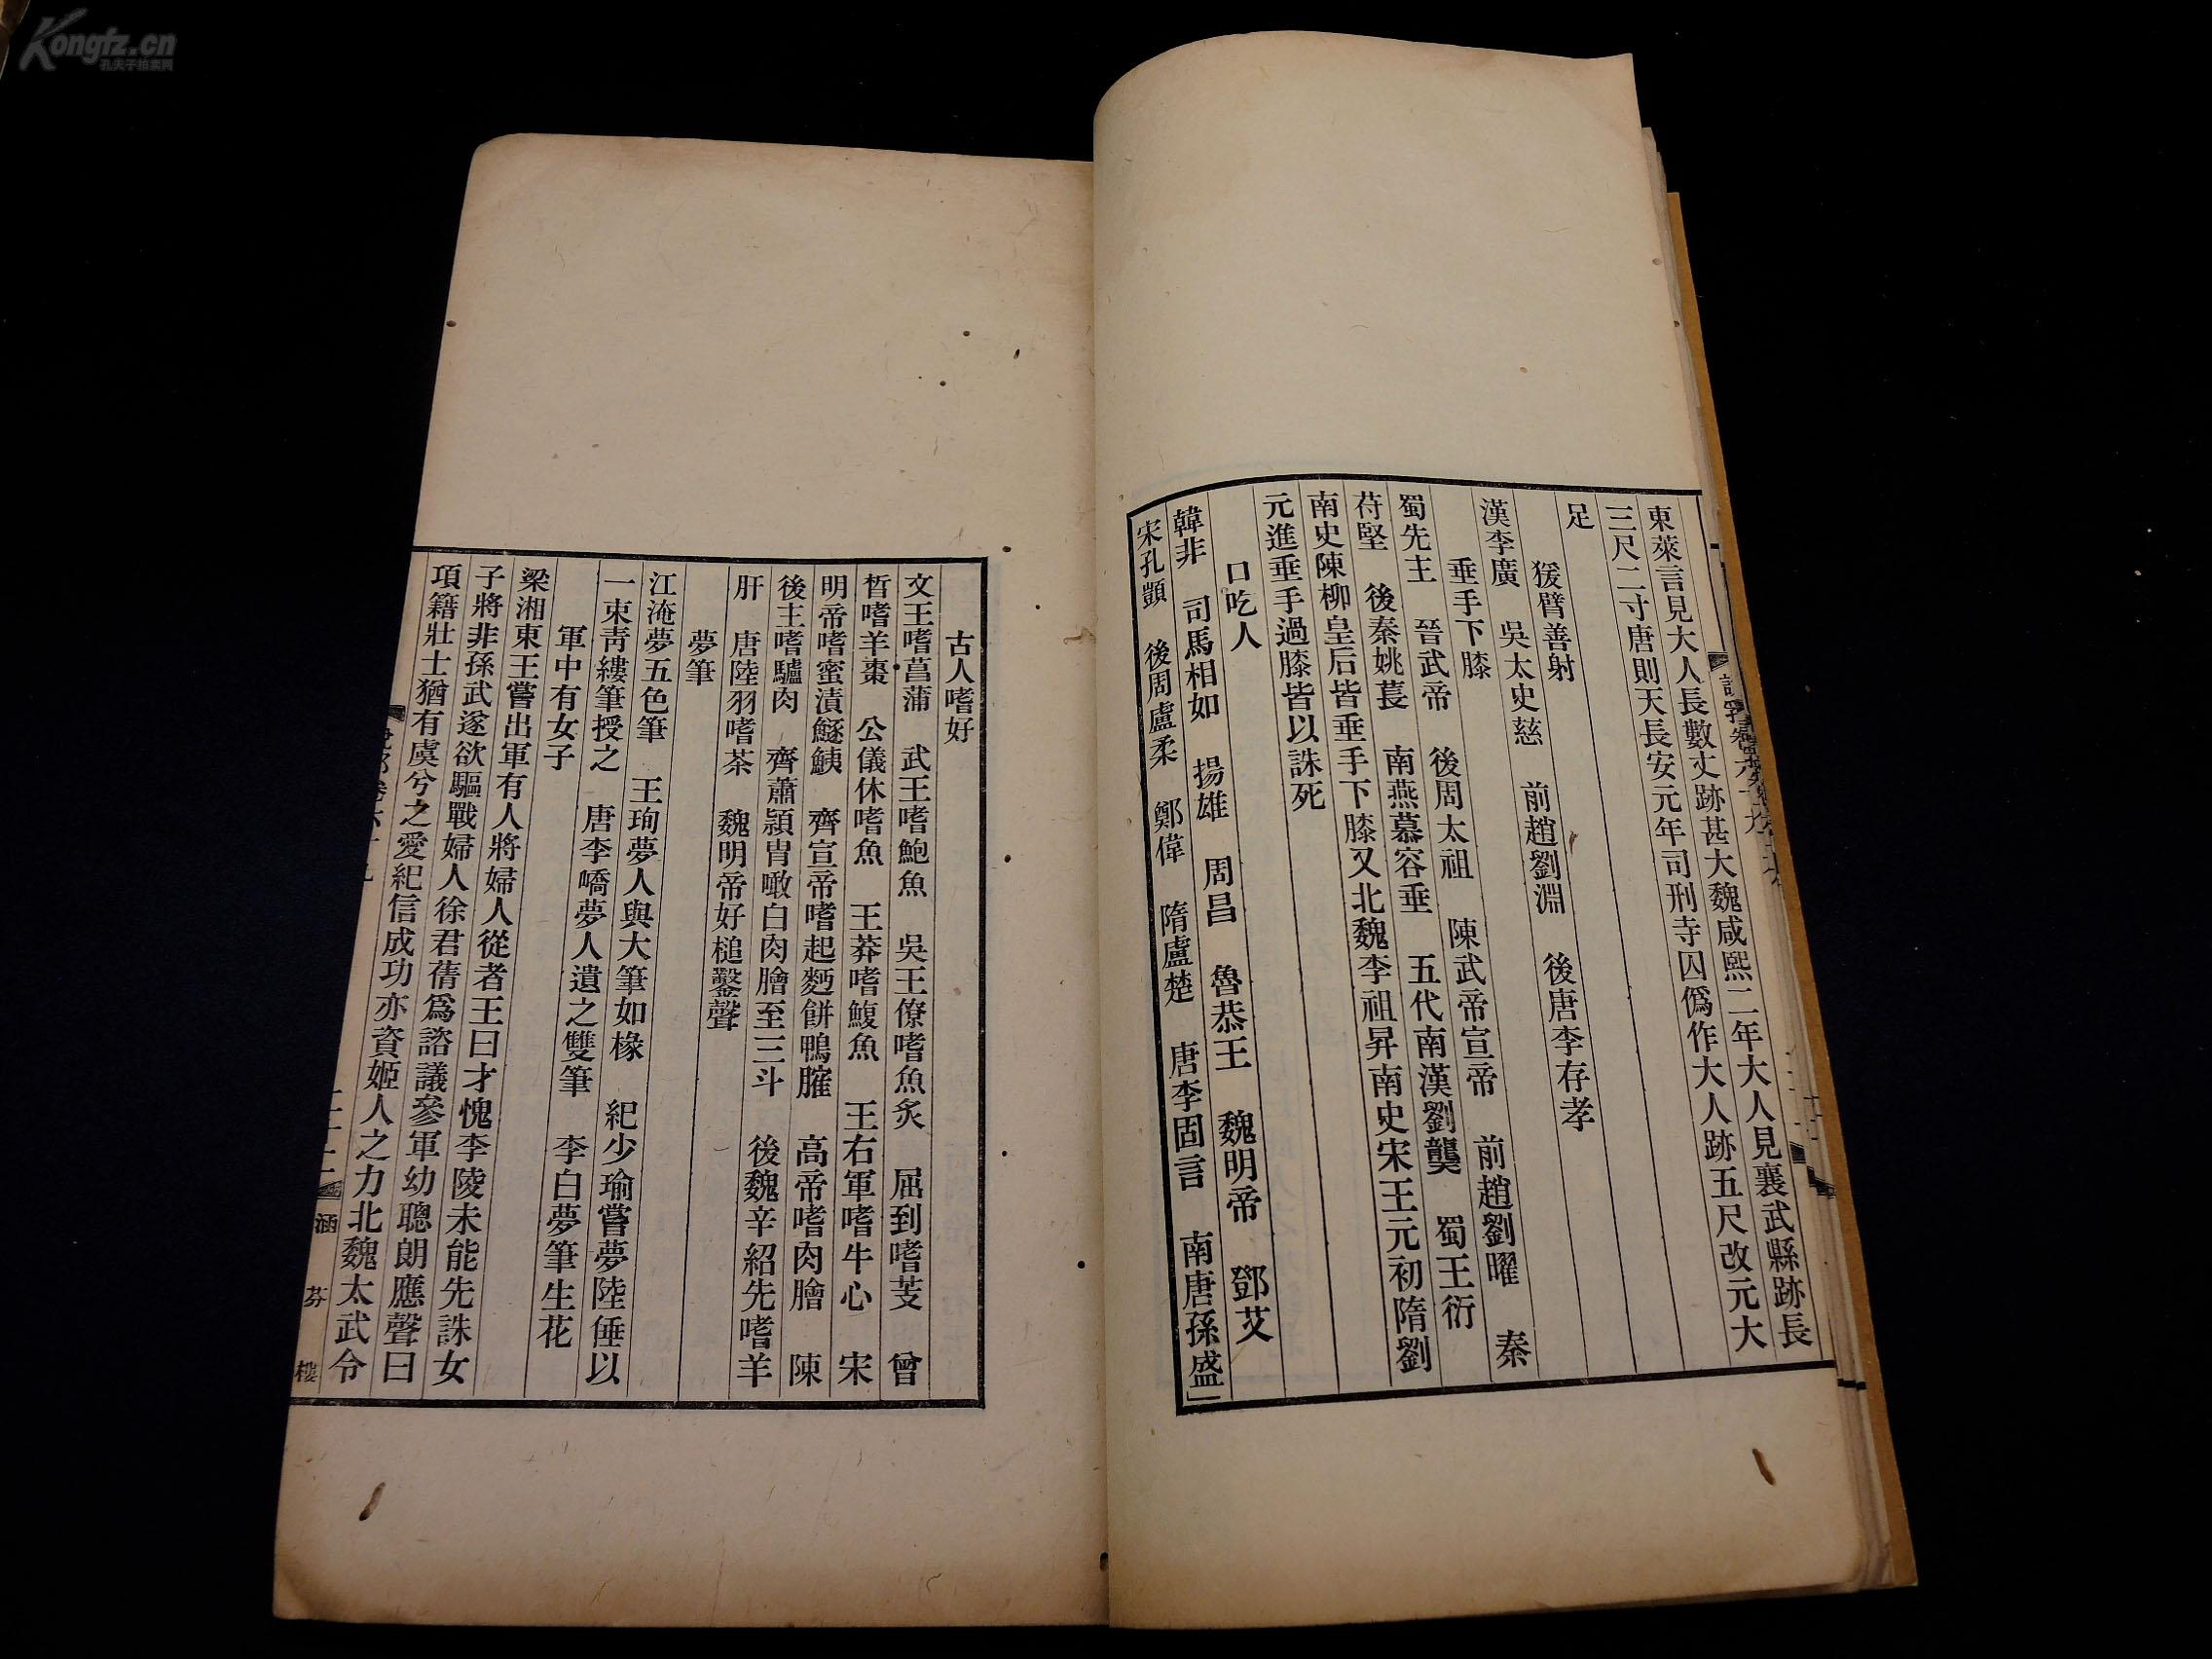 東萊言見大人長數丈跡甚大魏咸熙二年大人見襄武縣跡長
三尺二寸唐則天長安元年司刑寺囚僞作大人跡五尺改元大
足
猨臂善射
漢李廣 吳太史慈 前趙劉淵 後唐李存孝
垂手下膝
蜀先主 晉武帝 後周太祖 陳武帝宣帝 前趙劉曜 秦
苻堅 後秦姚萇 南燕慕容垂 五代南漢劉龑 蜀王衍
南史陳柳皇后皆垂手下膝又北魏李祖昇南史宋王元初隋劉
元進垂手過膝皆以誅死
口吃人
韓非 司馬相如 揚雄 周昌 魯恭王 魏明帝 鄧艾
宋孔顗 後周盧柔 鄭偉 隋盧楚 唐李固言 南唐孫盛」
古人嗜好
文王嗜菖蒲 武王嗜鮑魚 吳王僚嗜魚炙 屈到嗜芰 曾
晳嗜羊棗 公儀休嗜魚 王莽嗜鰒魚 王右軍嗜牛心 宋
明帝嗜蜜漬鱁鮧 齊宣帝嗜起麪餅鴨臛 高帝嗜肉膾 陳
後主嗜驢肉 齊蕭穎胄噉白肉膾至三斗 後魏辛紹先嗜羊
肝 唐陸羽嗜茶 魏明帝好槌鑿聲
夢筆
江淹夢五色筆 王珣夢人與大筆如椽 紀少瑜嘗夢陸倕以
一束靑縷筆授之 唐李嶠夢人遺之雙筆 李白夢筆生花
軍中有女子
梁湘東王嘗出軍有人將婦人從者王曰才愧李陵未能先誅女
子將非孫武遂欲驅戰婦人徐君蒨爲諮議參軍幼聰朗應聲曰
項籍壯士猶有虞兮之愛紀信成功亦資姬人之力北魏太武令
涵芬樓
Kongfz.cn
孔夫子拍卖网